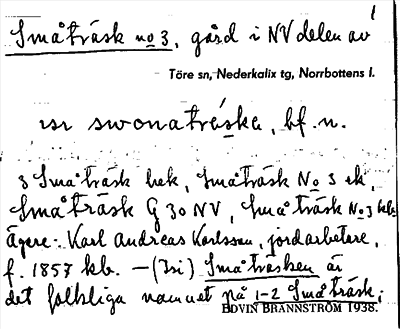 1
Småträsk no 3, gård i NV delen av
Töre sn, Nederkalix tg, Norrbottens l.
swonatréska, bf. n.
3 Småträsk hek, Småträsk No 3 ek,
Småträsk G 30 NV, Småträsk No 3
Ägare: Karl Andreas Karlsson, jordarbetare,
f. 1857 kb. – (Isi) Småträsken är
det folkliga namnet på 1-2 Småträsk;
EDVIN BRÄNNSTRÖM 1938.